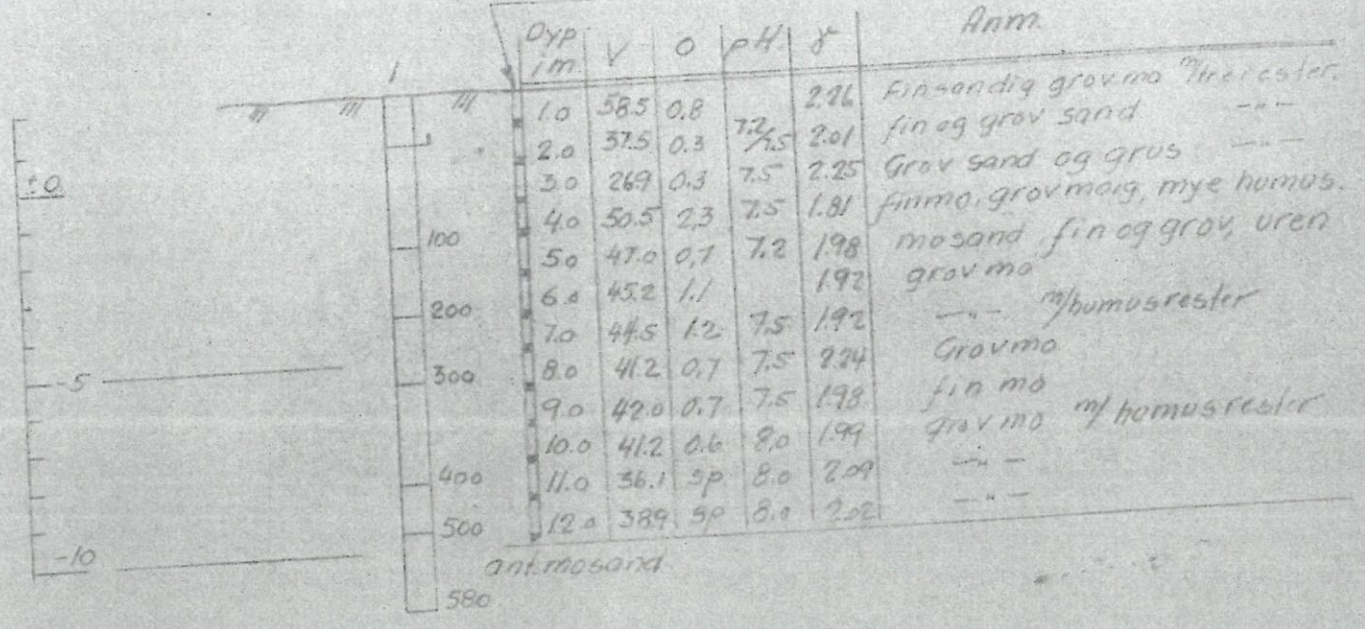 Dyp i m. V O pH γ Anm.
1.0 58.5 0.8 finsandig grovmo m/trerester.
2.0 37.5 0.3 7.2/7.5 2.01 fin og grov sand —„—
3.0 26.9 0.3 7.5 2.25 Grov sand og grus —„—
4.0 50.5 2.3 7.5 1.81 finmo, grovmoig, mye humus.
5.0 47.0 0.7 7.2 1.98 mosand, fin og grov, uren
6.0 45.2 1.1 1.92 grovmo
7.0 44.5 1.2 7.5 1.92 —„— m/humusrester
8.0 41.2 0.7 7.5 Grovmo
9.0 42.0 0.7 7.5 1.98 fin mo
10.0 41.2 0.6 8.0 1.99 grovmo m/humusrester
11.0 36.1 sp 8.0 2.09 —„—
12.0 38.9 sp 8.0 2.02 —„—
ant. mosand
1
100
200
300
400
500
580
±0
-5
-10